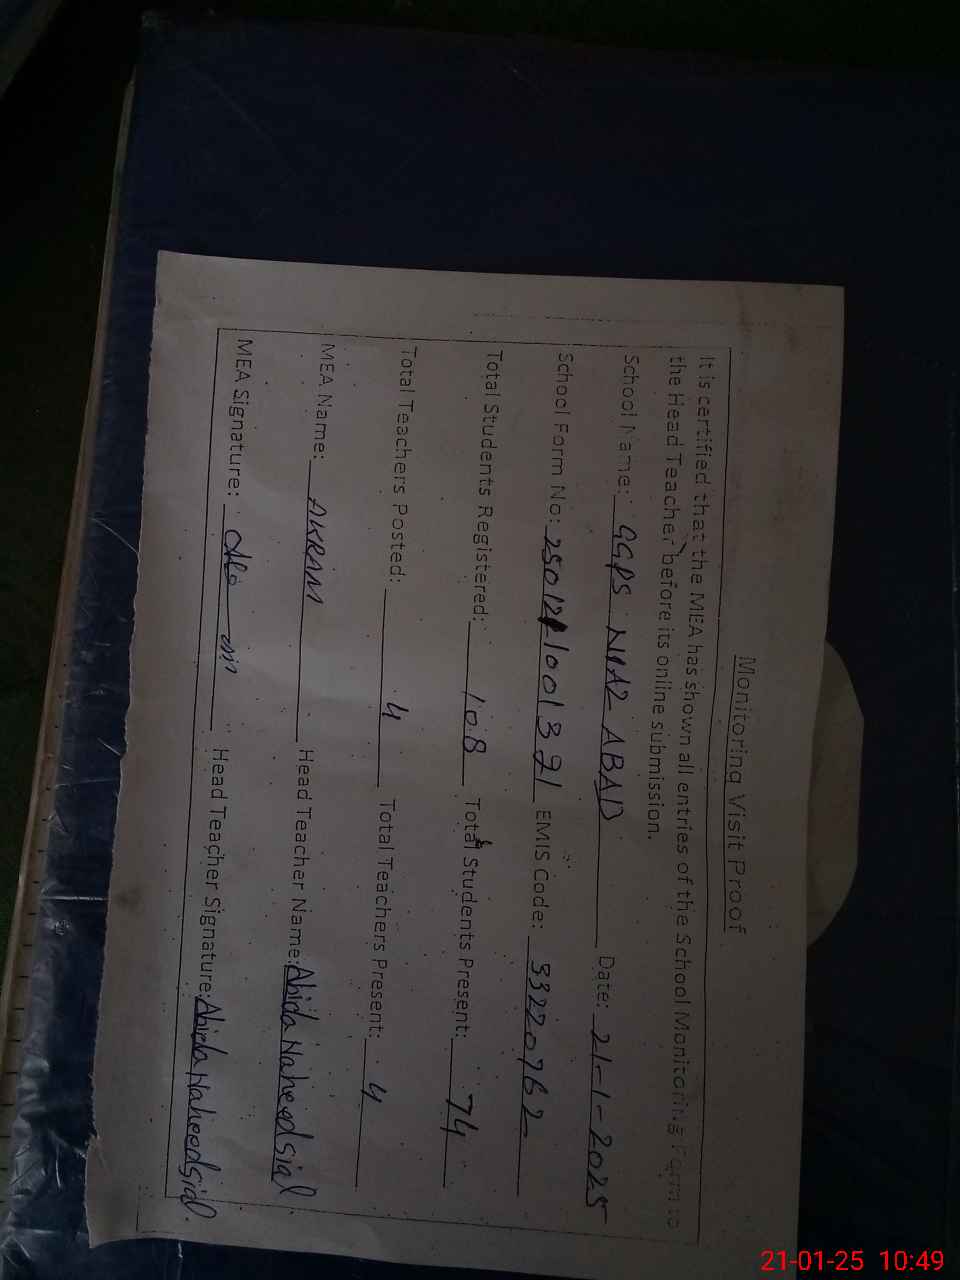 Monitoring Visit Proof
It is certified that the MEA has shown all entries of the School Monitoring Form to
the Head Teacher before its online submission.
School Name: GGPS NIAZ ABAD Date: 21-1-2025
School Form No: EMIS Code: 33220762
Total Students Registered: 108 Total Students Present: 74
Total Teachers Posted: 4 Total Teachers Present: 4
MEA Name: AKRAM Head Teacher Name: Abida Naheed sial
MEA Signature: Head Teacher Signature: Abida Naheed sial.
21-01-25 10:49